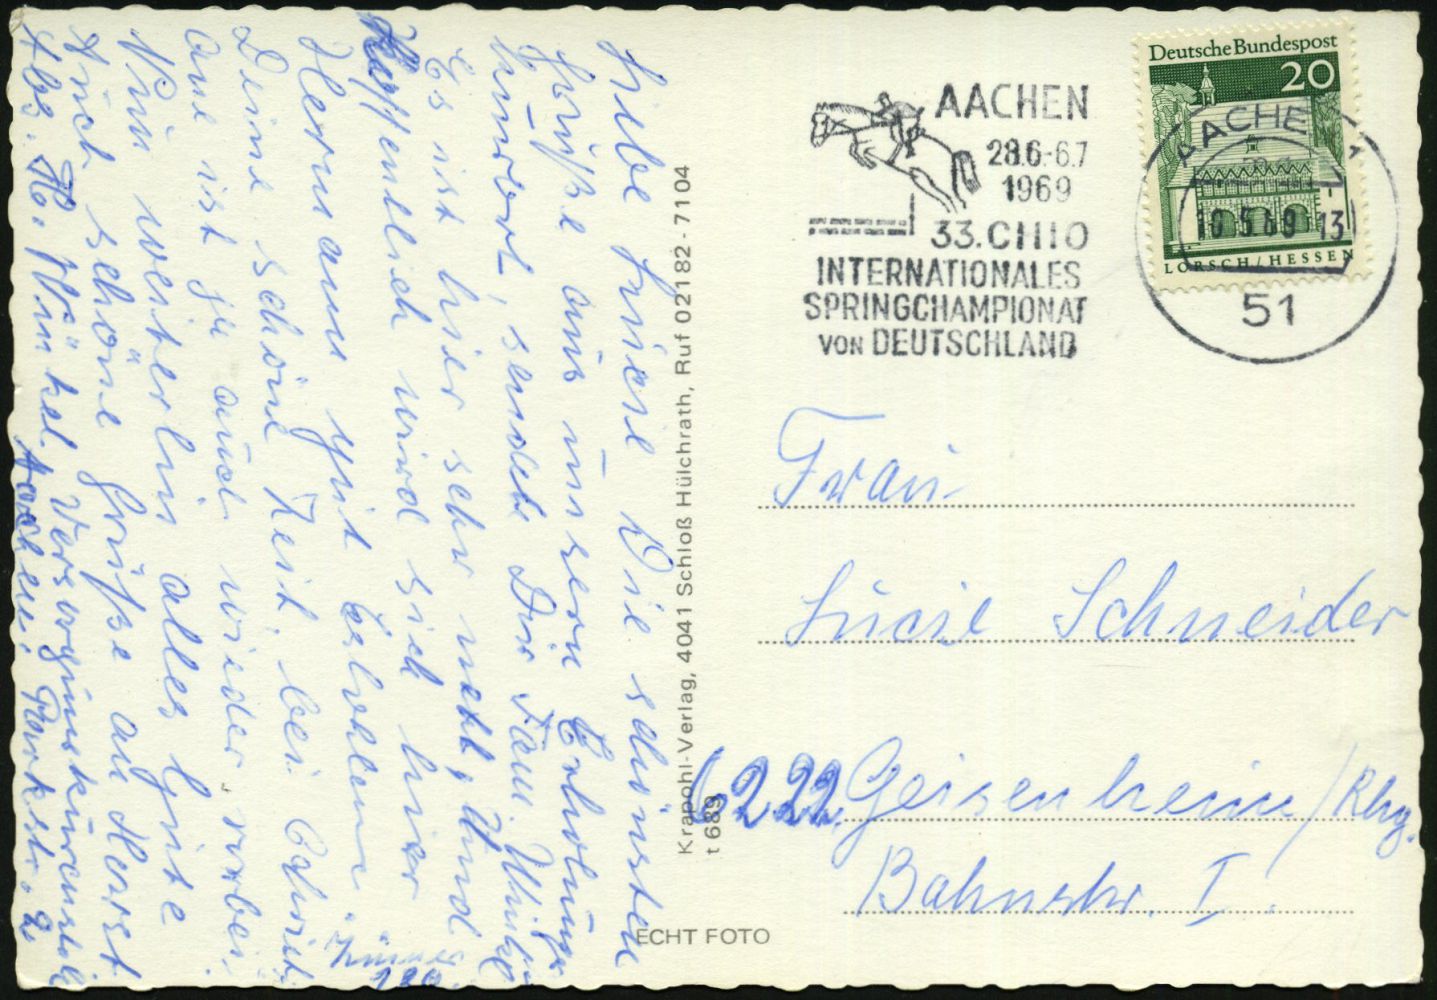 Liebe Lucie! Die schönsten
Grüße aus unserm Erholungs-
urlaub, sendet Dir Fam. Winkel
Es ist hier sehr nett, und
Hoffentlich wird sich hier
Hermann gut erholen.
Deine schöne Zeit, bei
aus ist ja auch wieder vorbei.
Nun weiterhin alles Gute
Auch schöne Grüße an Horst
Abs. H. Winkel Versorgungskuranstalt
Aachen, Parkstr. 2
Zimmer
Krapohl-Verlag, 4041 Schloß Hülchrath, Ruf 02182 - 7104
t 689
ECHT FOTO
AACHEN
28.6.-6.7
1969
33.CHIO
INTERNATIONALES
SPRINGCHAMPIONAT
VON DEUTSCHLAND
Deutsche Bundespost
20
LORSCH/HESSEN
AACHEN
5.69-13
51
Frau
Lucie Schneider
6222 Geisenheim/Rhg.
Bahnstr. I.